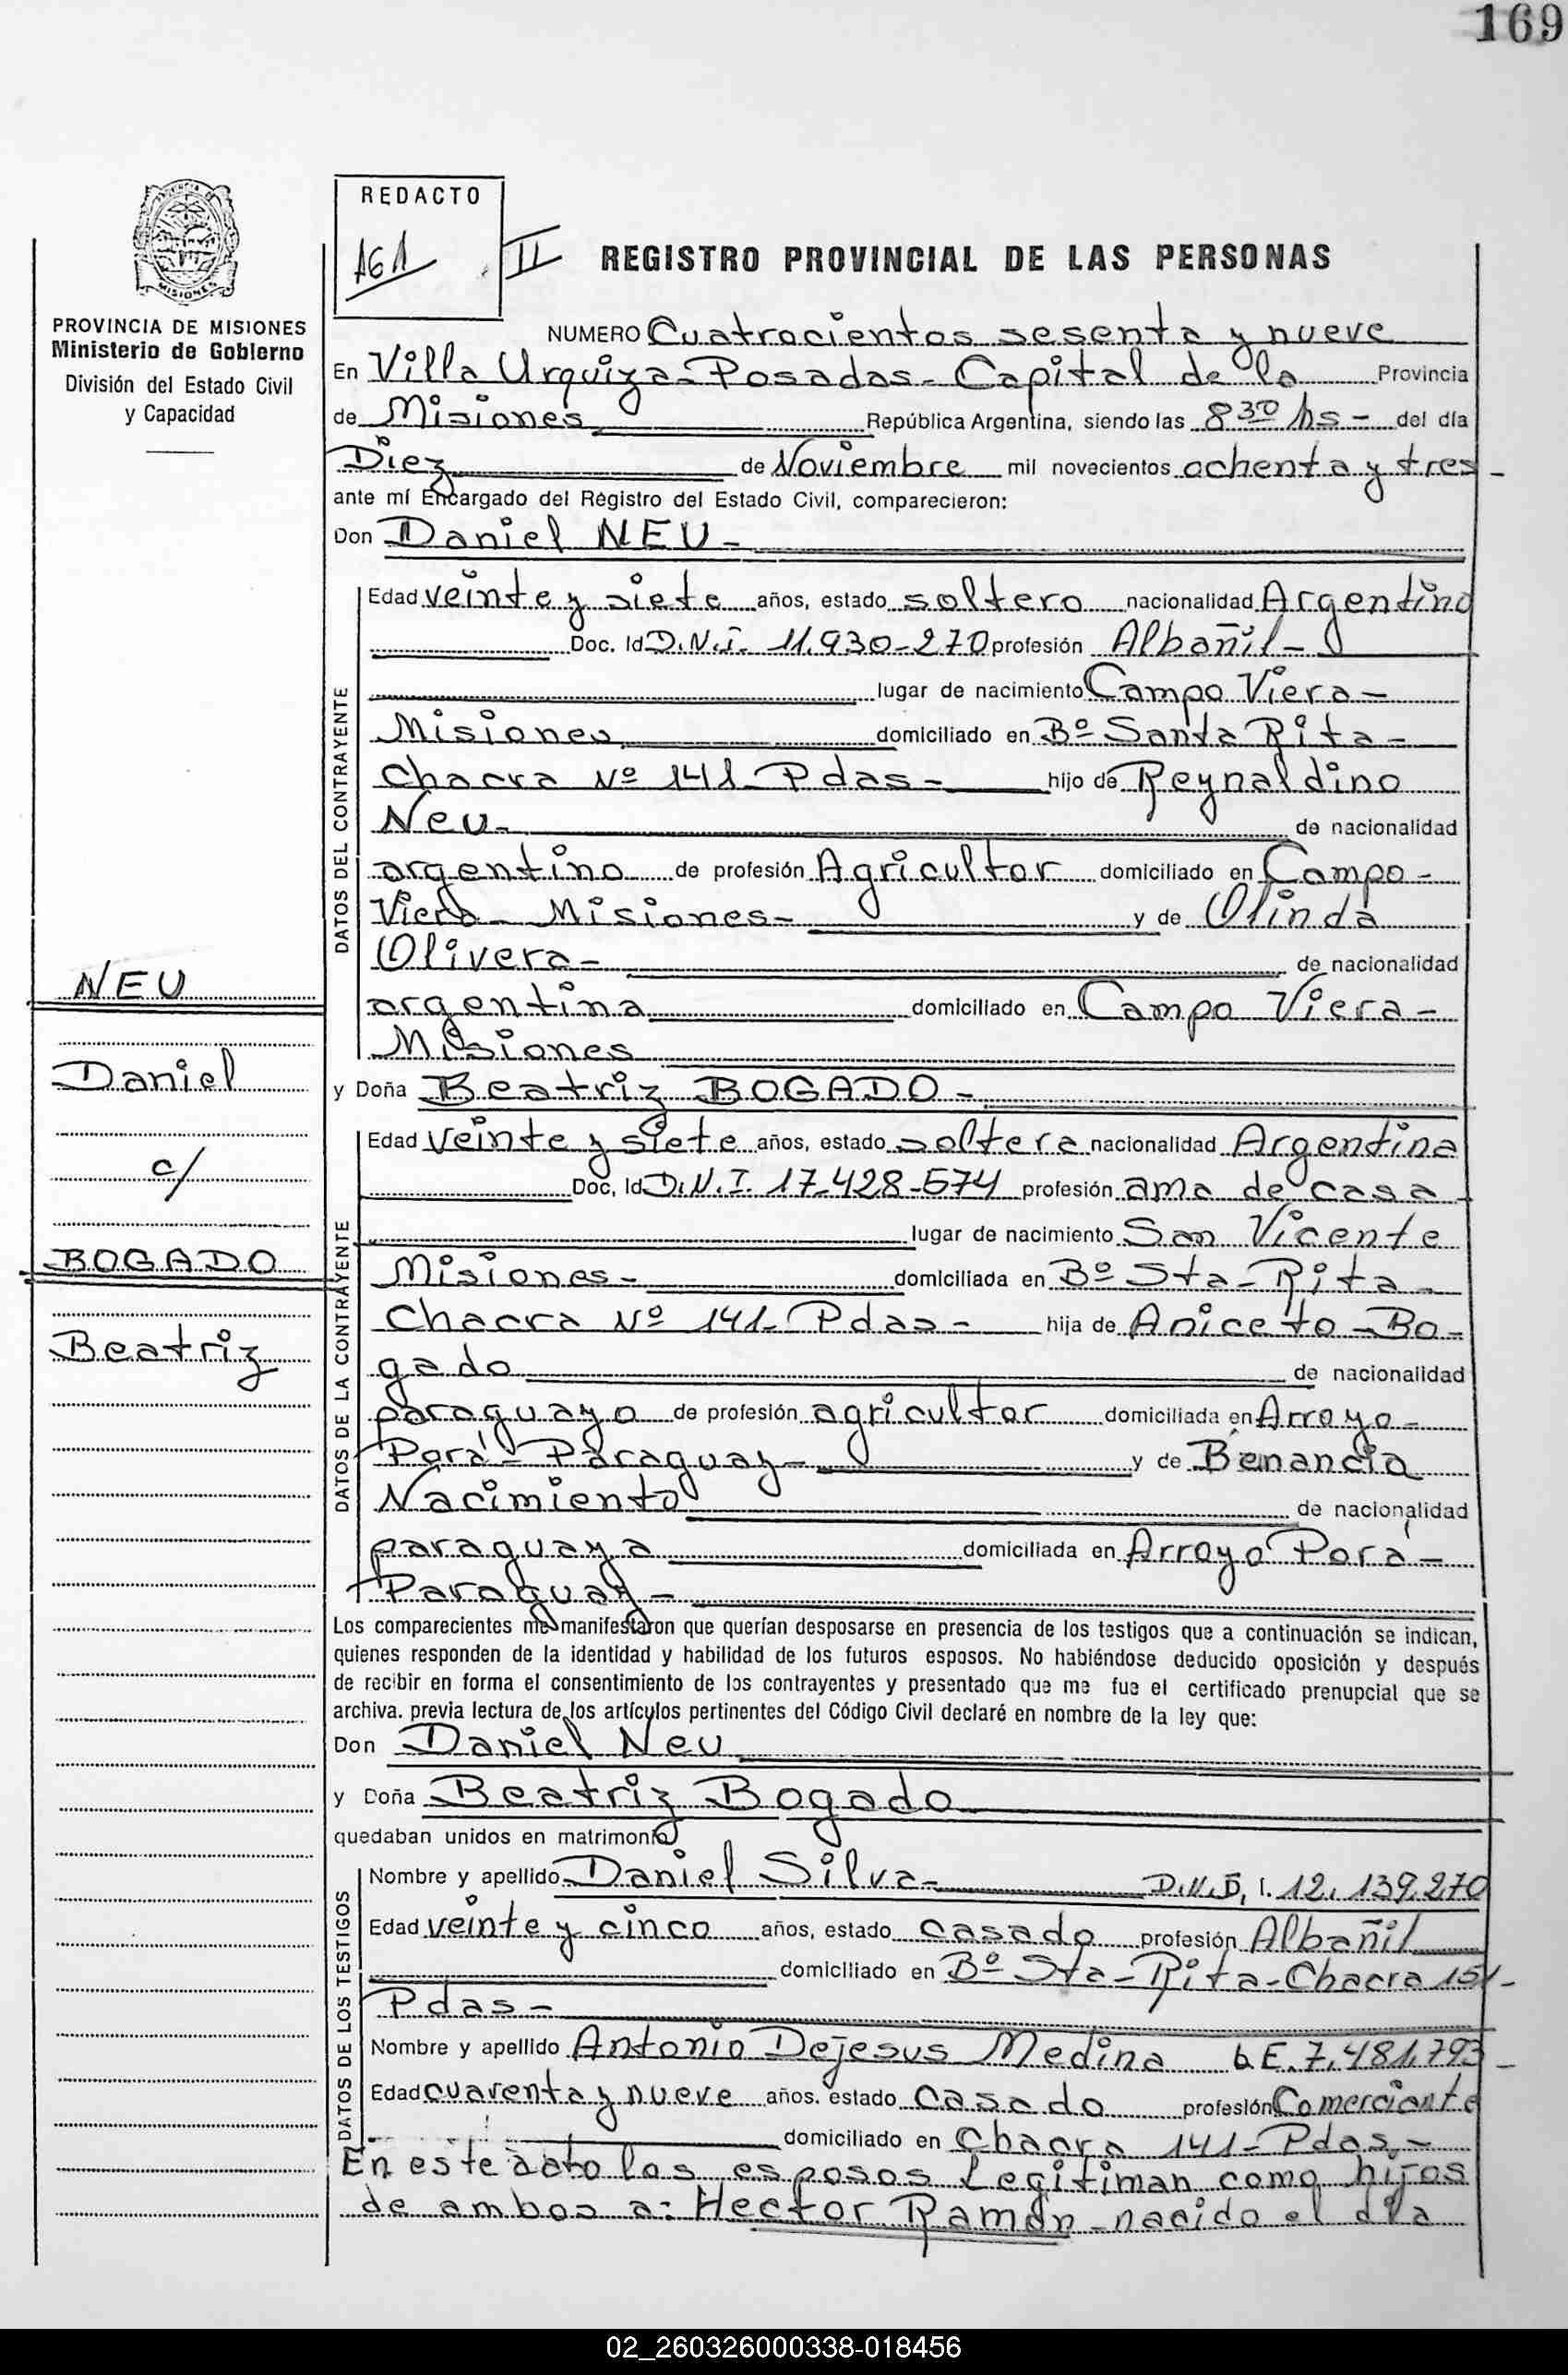 169
REDACTO
161
II
REGISTRO PROVINCIAL DE LAS PERSONAS
PROVINCIA DE MISIONES
Ministerio de Gobierno
División del Estado Civil
y Capacidad
NUMERO Cuatrocientos sesenta y nueve
En Villa Urquiza - Posadas - Capital de la Provincia
de Misiones República Argentina, siendo las 8 30 hs - del día
Diez de Noviembre mil novecientos ochenta y tres -
ante mí Encargado del Registro del Estado Civil, comparecieron:
Don Daniel NEU -
DATOS DEL CONTRAYENTE
Edad veinte y siete años, estado soltero nacionalidad Argentino
Doc. Id D.N.I. 11.930-270 profesión Albañil -
lugar de nacimiento Campo Viera -
Misiones domiciliado en Bº Santa Rita -
Chacra Nº 141 - Pdas - hijo de Reynaldino
Neu - de nacionalidad
argentino de profesión Agricultor domiciliado en Campo -
Viera - Misiones - y de Olinda
Olivera - de nacionalidad
argentina domiciliado en Campo Viera -
Misiones
y Doña Beatriz BOGADO -
NEU
Daniel
c/
BOGADO
Beatriz
DATOS DE LA CONTRAYENTE
Edad veinte y siete años, estado soltera nacionalidad Argentina
Doc, Id D.N.I. 17-428-574 profesión ama de casa
lugar de nacimiento San Vicente
Misiones - domiciliada en Bº Sta - Rita -
Chacra Nº 141 - Pdas - hija de Aniceto - Bo-
gado de nacionalidad
paraguayo de profesión agricultor domiciliada en Arroyo -
Porá - Paraguay - y de Benancia
Nacimiento de nacionalidad
paraguaya domiciliada en Arroyo Porá -
Paraguay -
Los comparecientes me manifestaron que querían desposarse en presencia de los testigos que a continuación se indican,
quienes responden de la identidad y habilidad de los futuros esposos. No habiéndose deducido oposición y después
de recibir en forma el consentimiento de los contrayentes y presentado que me fue el certificado prenupcial que se
archiva. previa lectura de los artículos pertinentes del Código Civil declaré en nombre de la ley que:
Don Daniel Neu
y Doña Beatriz Bogado
quedaban unidos en matrimonio
DATOS DE LOS TESTIGOS
Nombre y apellido Daniel Silva - 12.139.270
Edad veinte y cinco años, estado casado profesión Albañil
domiciliado en Bº Sta - Rita - Chacra 151 -
Pdas -
Nombre y apellido Antonio Dejesus Medina L.E. 7.481.793 -
Edad cuarenta y nueve años. estado casado profesión Comerciante
domiciliado en Chacra 141 - Pdas. -
En este acto los esposos Legitiman como hijos
de ambos a: Hector Ramón - nacido el día
02_260326000338-018456